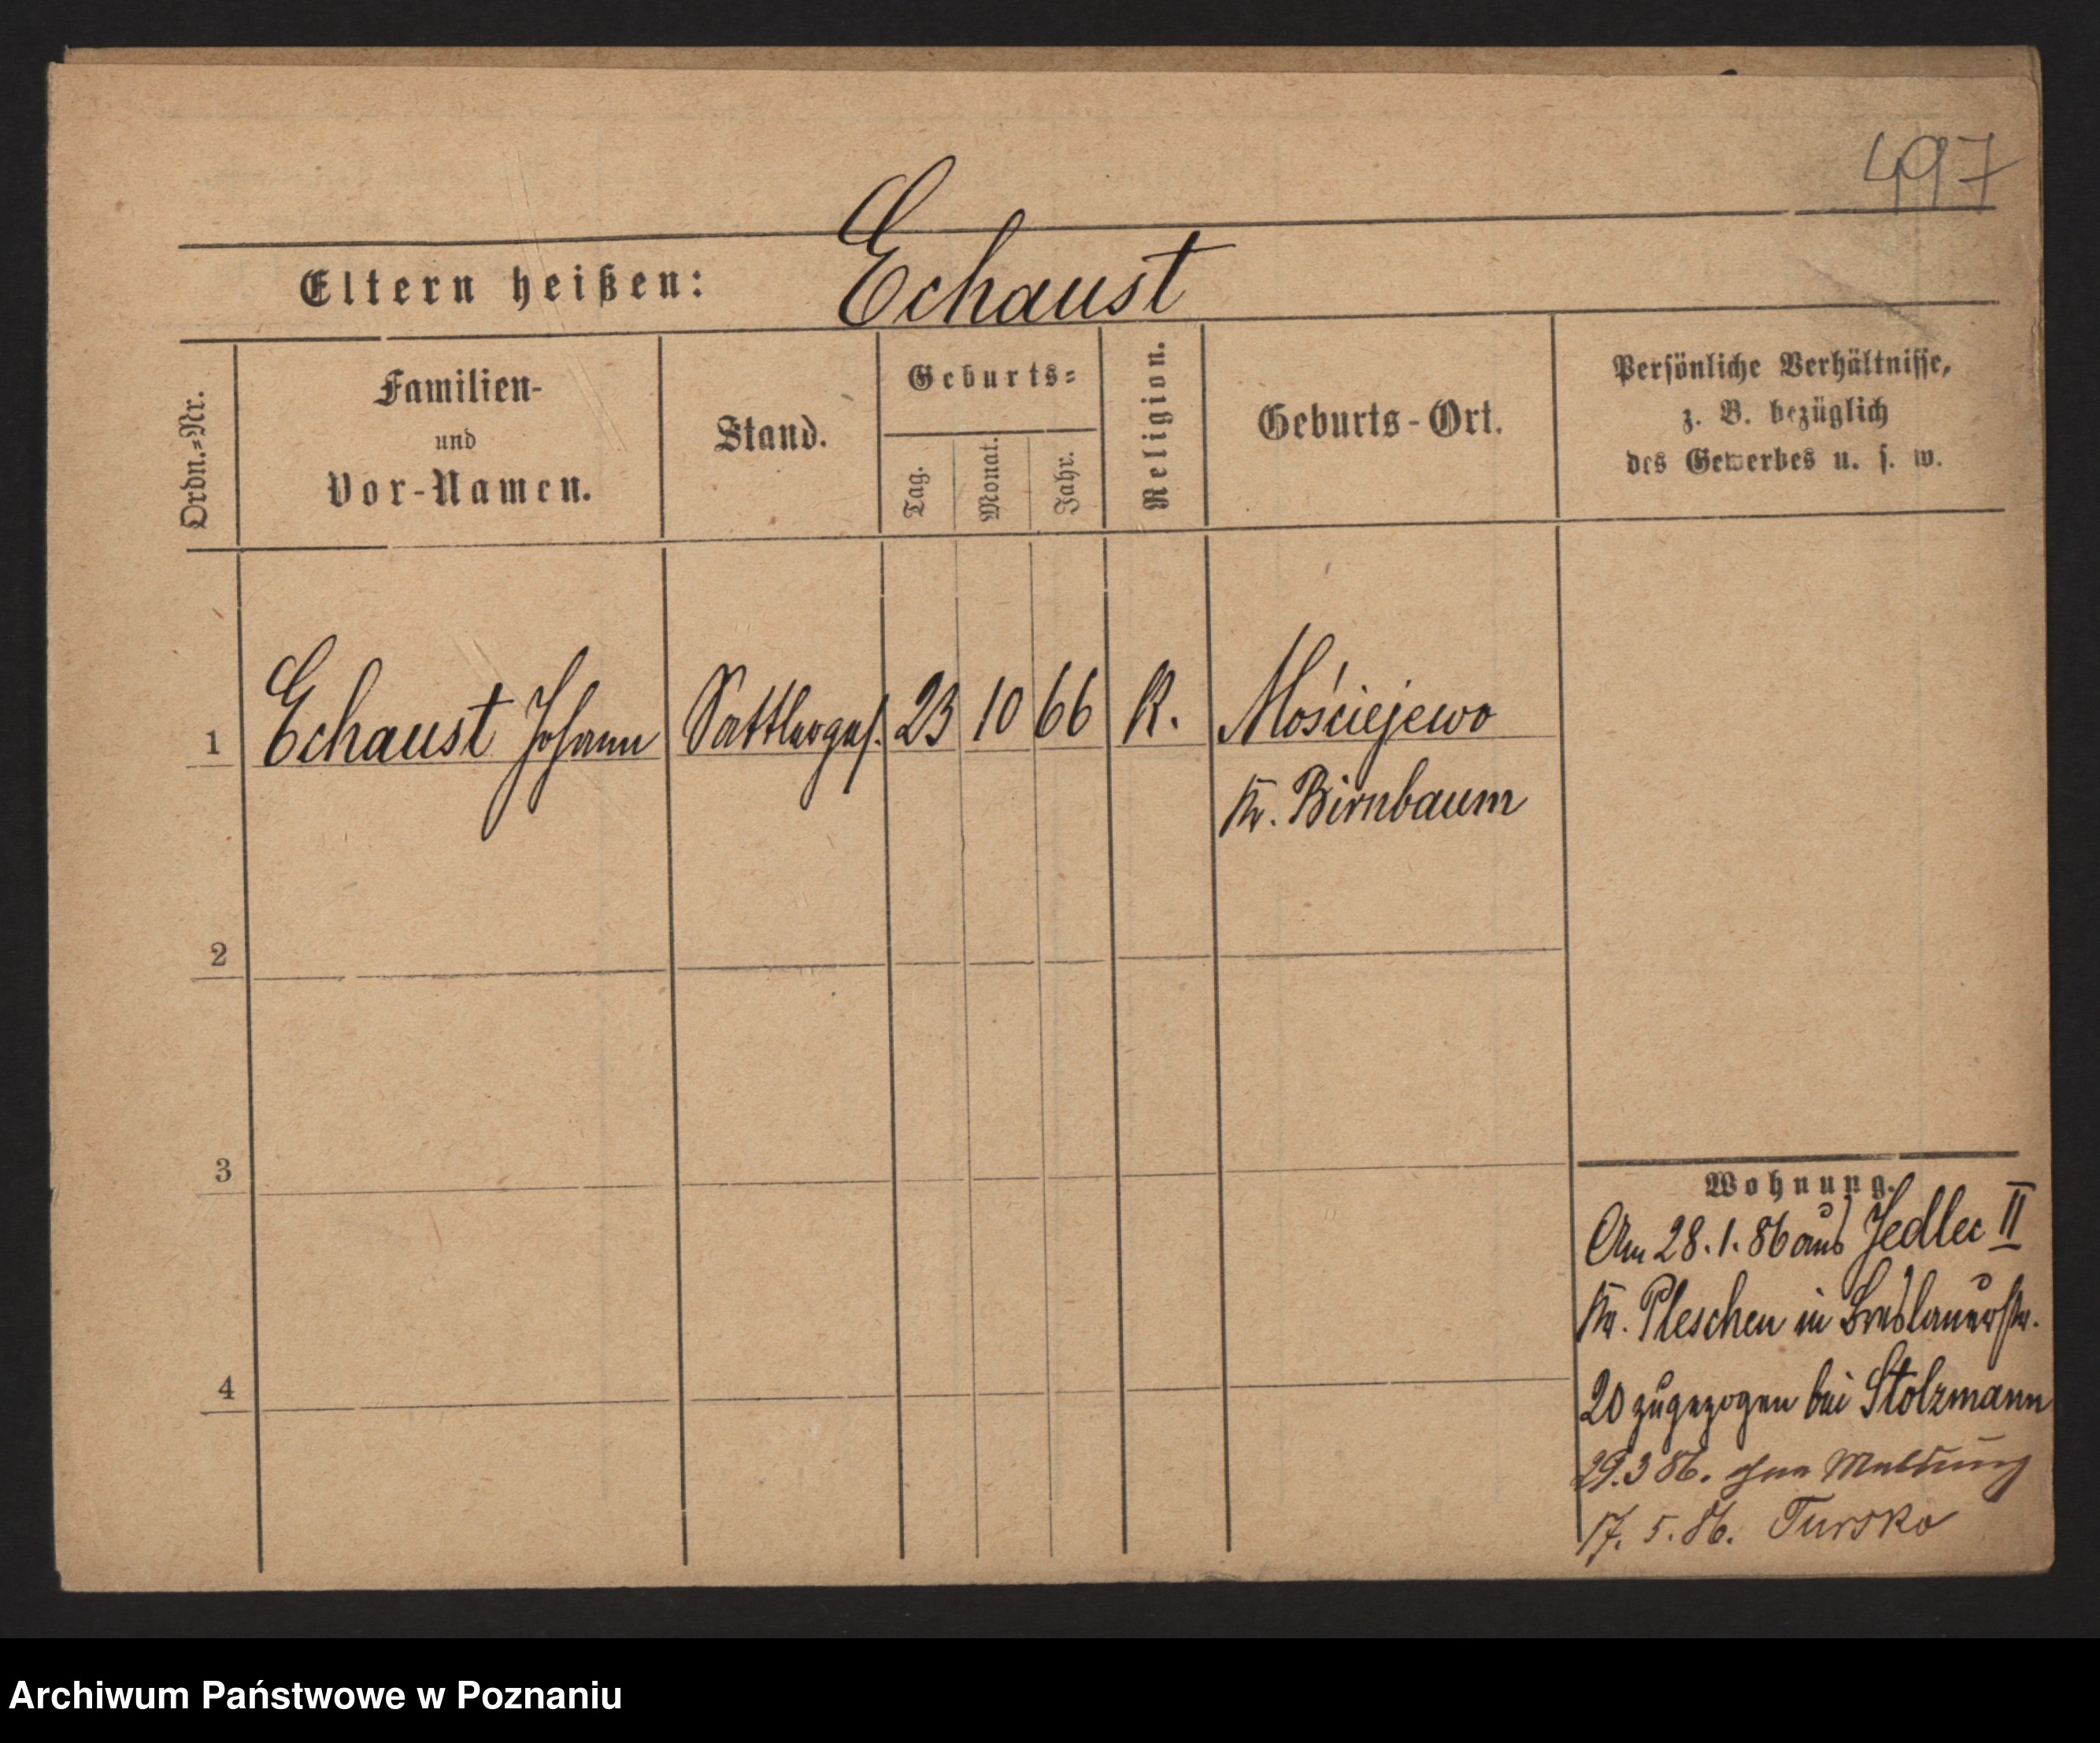 497
Eltern heißen: Echaust
Ordn.=Nr.
Familien-
und
Vor-Namen.
Stand.
Geburts=
Tag.
Monat.
Jahr.
Religion.
Geburts-Ort.
Persönliche Verhältnisse,
z. B. bezüglich
des Gewerbes u. s. w.
1 Echaust Johann Sattlerges. 23 10 66 K. Mościejewo
Kr. Birnbaum
2
3
4
Wohnung.
Am 28.1.86 aus Jedlec II
Kr. Pleschen in Breslauerstr.
20 zugezogen bei Stolzmann
29.3 86. ohne Meldung
17.5.86. Tursko
Archiwum Państwowe w Poznaniu